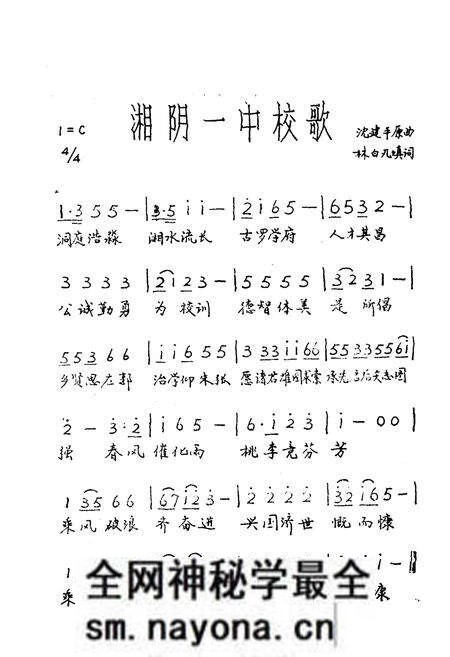 湘阴一中校歌
1=C
4/4
沈建平原曲
林白凡填词
1·3 5 5 — | 3·5 i i — | 2 i 6 5 — | 6 5 3 2 — |
洞庭浩淼 湘水流长 古罗学府 人才其昌
3 3 3 3 | 2 i 2 3 — | 5 5 5 5 | 3 2 3 1 — |
公诚勤勇 为校训 德智体美 是所倡
5 5 3 6 6 | i i 6 5 5 | 3 3 3 i i 6 6 | 5 5 3 3 5 5 6 i |
乡贤思左郭 治学仰朱张 愿诸君雄图求索 承先启后矢志图
2 — 3·2 | i 2 2 — | 6·i 2 3 | i — 0 0 |
强 春风催化雨 桃李竞芬芳
1 3 5 6 6 | 6 7 i 2 3 — | 2 2 2 2 | 3 2 i 6 5 — |
乘风破浪 齐奋进 兴国济世 慨而慷
1
乘 康
全网神秘学最全
sm.nayona.cn